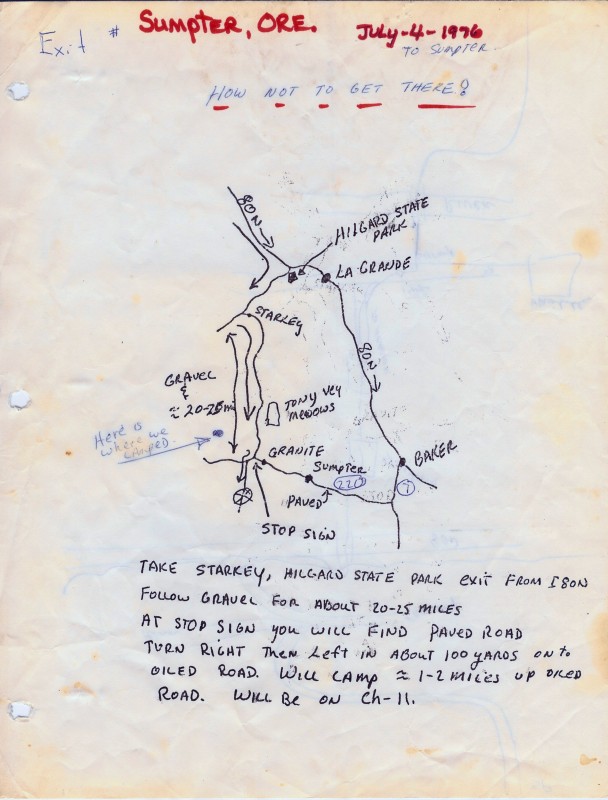 Exit #
SUMPTER, ORE.
JULY-4-1976
TO SUMPTER.
HOW NOT TO GET THERE!
80N
HILGARD STATE
PARK
LA GRANDE
STARLEY
80N
GRAVEL
&
≈ 20-25 m
TONY VEY
MEDOWS
Here is
where we
camped.
GRANITE
SUMPTER
220
BAKER
7
PAVED
STOP SIGN
TAKE STARKEY, HILGARD STATE PARK EXIT FROM I80N
FOLLOW GRAVEL FOR ABOUT 20-25 MILES
AT STOP SIGN YOU WILL FIND PAVED ROAD
TURN RIGHT THEN LEFT IN ABOUT 100 YARDS ON to
OILED ROAD. WILL CAMP ≈ 1-2 MILES UP OILED
ROAD. WILL BE ON Ch-11.